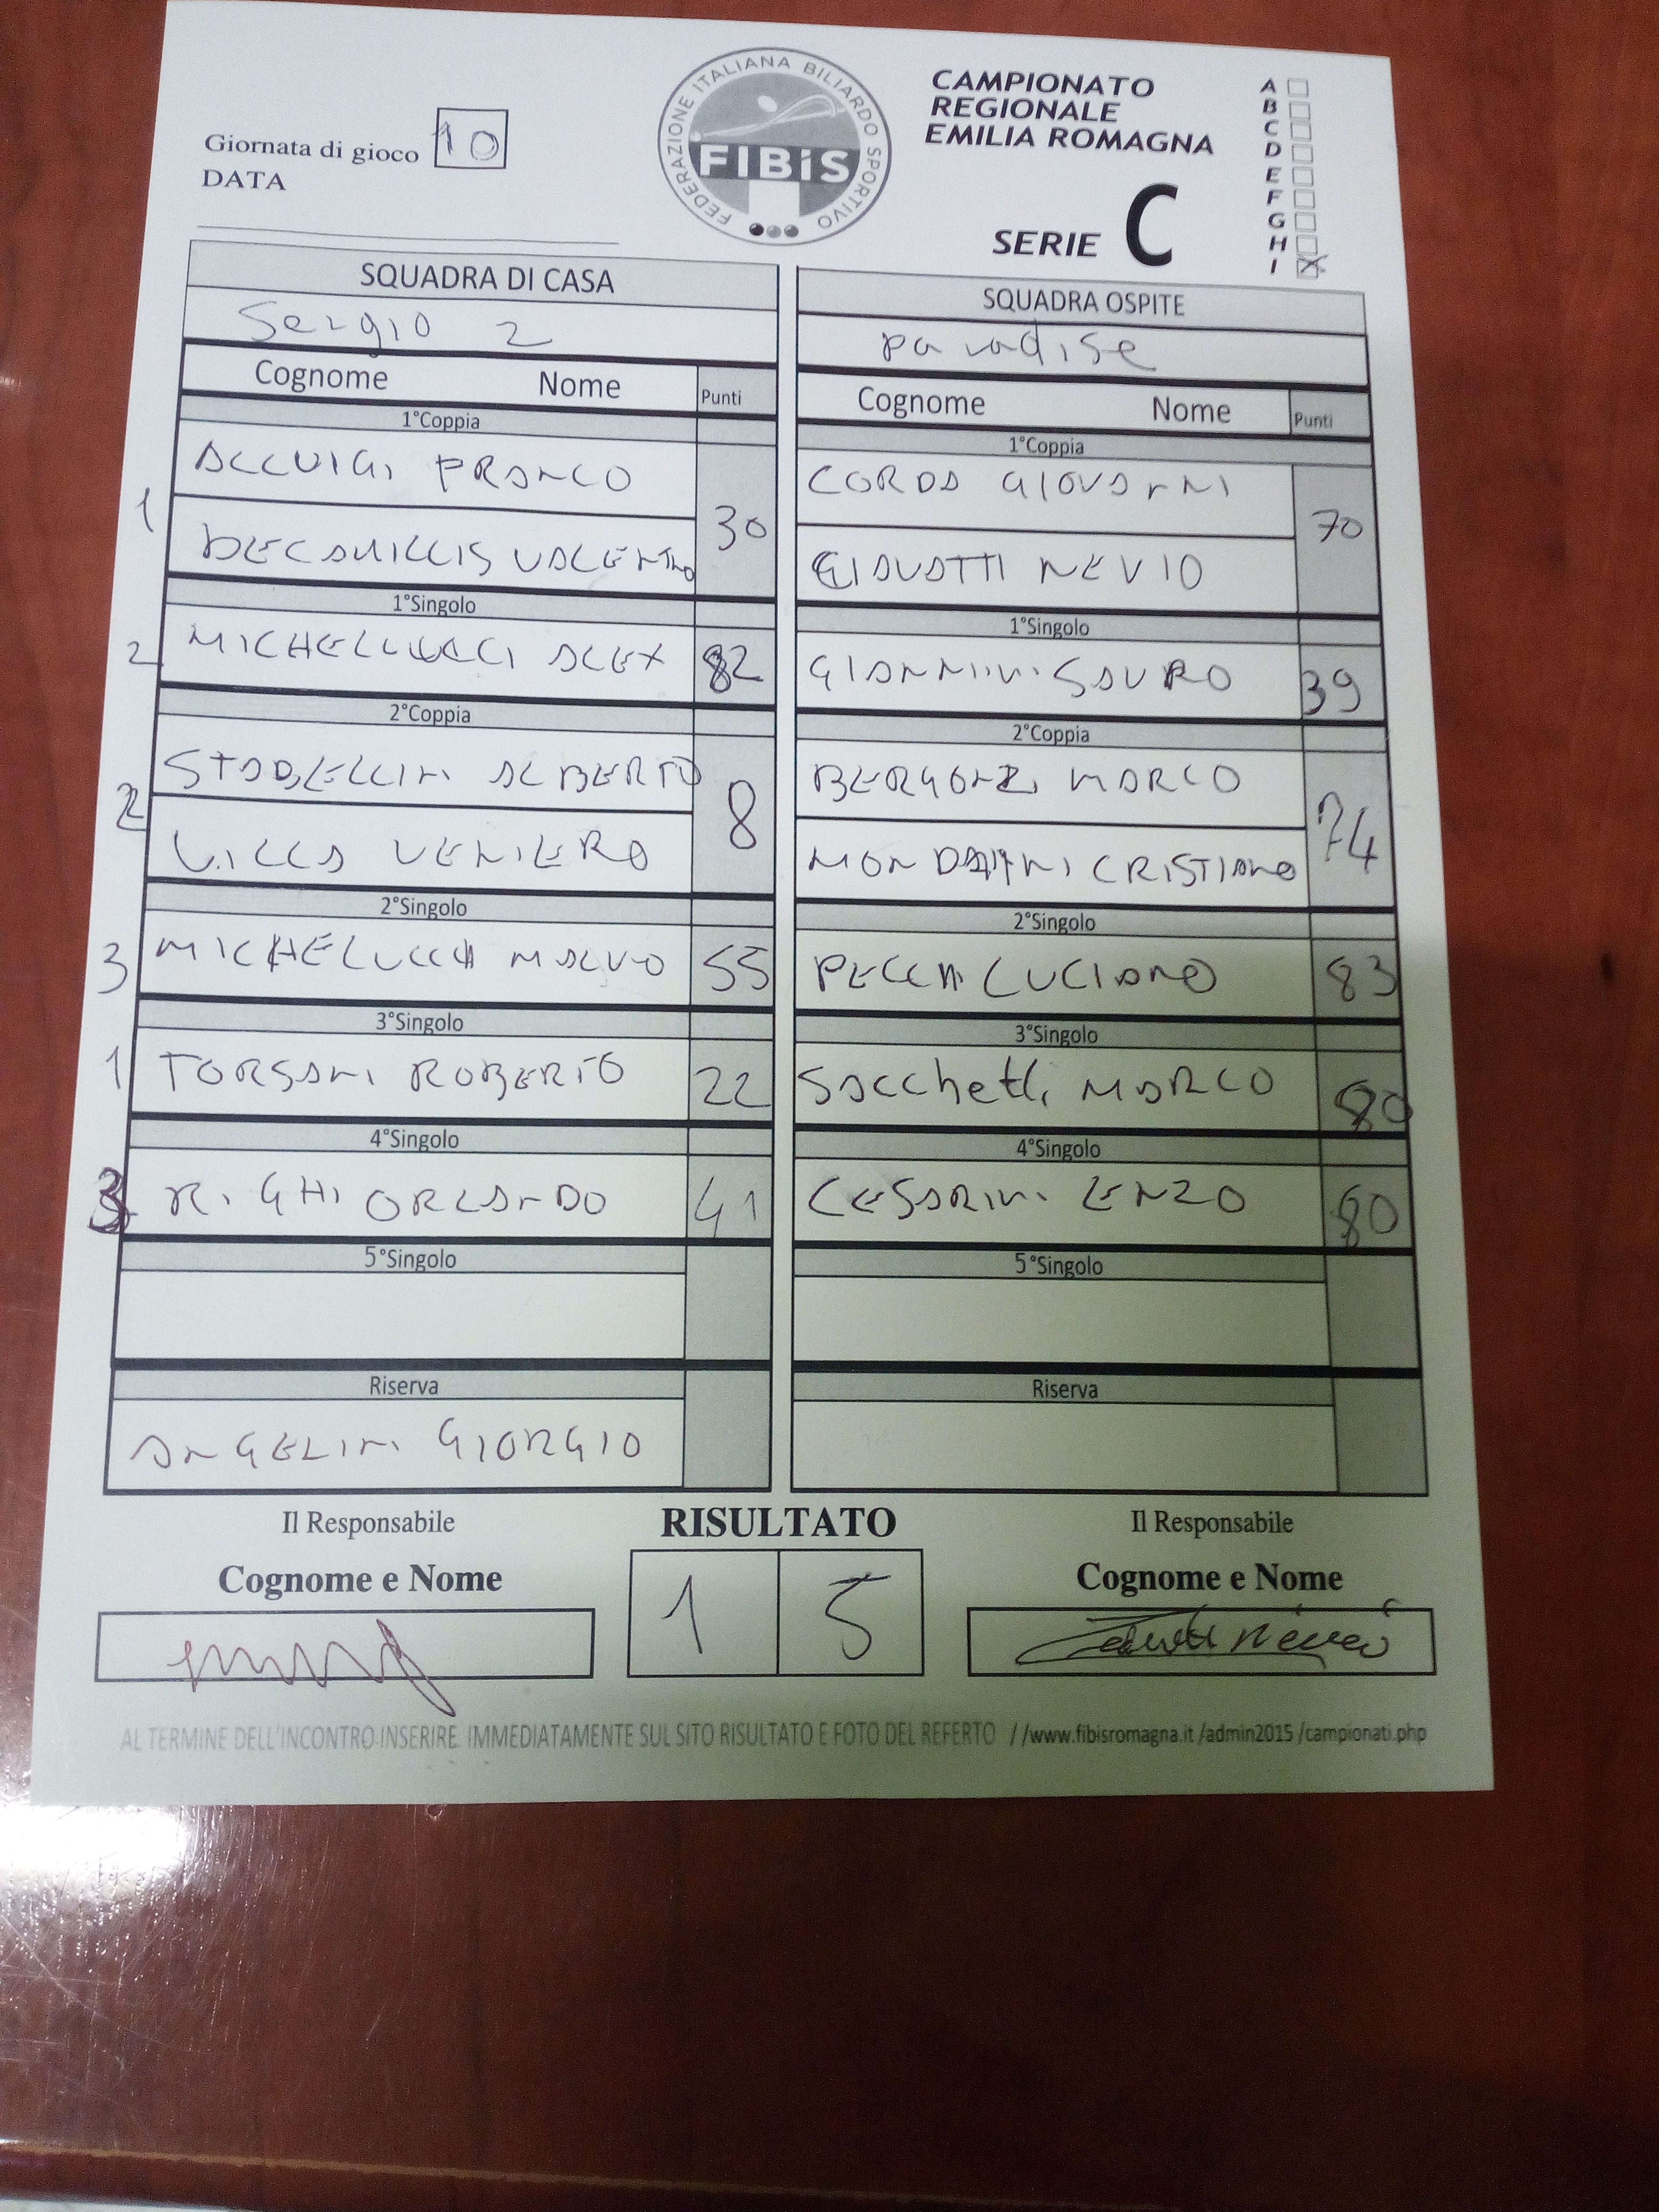 Giornata di gioco 10
DATA
FEDERAZIONE ITALIANA BILIARDO SPORTIVO
FIBiS
CAMPIONATO
REGIONALE
EMILIA ROMAGNA
SERIE C
A
B
C
D
E
F
G
H
I X
SQUADRA DI CASA
Sergio 2
Cognome Nome Punti
1°Coppia
1 ACCUIGI FRANCO 30
DECAMILLIS VALENTINO
1°Singolo
2 MICHELLUCCI ALEX 82
2°Coppia
2 STABELLINI ALBERTO 8
VILLA VENIERO
2°Singolo
3 MICHELUCCI MALVO 55
3°Singolo
1 TORSANI ROBERTO 22
4°Singolo
3 RIGHI ORLANDO 41
5°Singolo
Riserva
ANGELINI GIORGIO
SQUADRA OSPITE
paradise
Cognome Nome Punti
1°Coppia
CORDA GIOVANNI 70
GIAVOTTI NEVIO
1°Singolo
GIANNINI SAURO 39
2°Coppia
BERGONZI MARCO 74
MONDAINI CRISTIANO
2°Singolo
PECCI LUCIANO 83
3°Singolo
Sacchetti MARCO 80
4°Singolo
CESARINI ENZO 80
5°Singolo
Riserva
Il Responsabile
Cognome e Nome
RISULTATO
1 5
Il Responsabile
Cognome e Nome
AL TERMINE DELL'INCONTRO INSERIRE IMMEDIATAMENTE SUL SITO RISULTATO E FOTO DEL REFERTO //www.fibisromagna.it /admin2015 /campionati.php